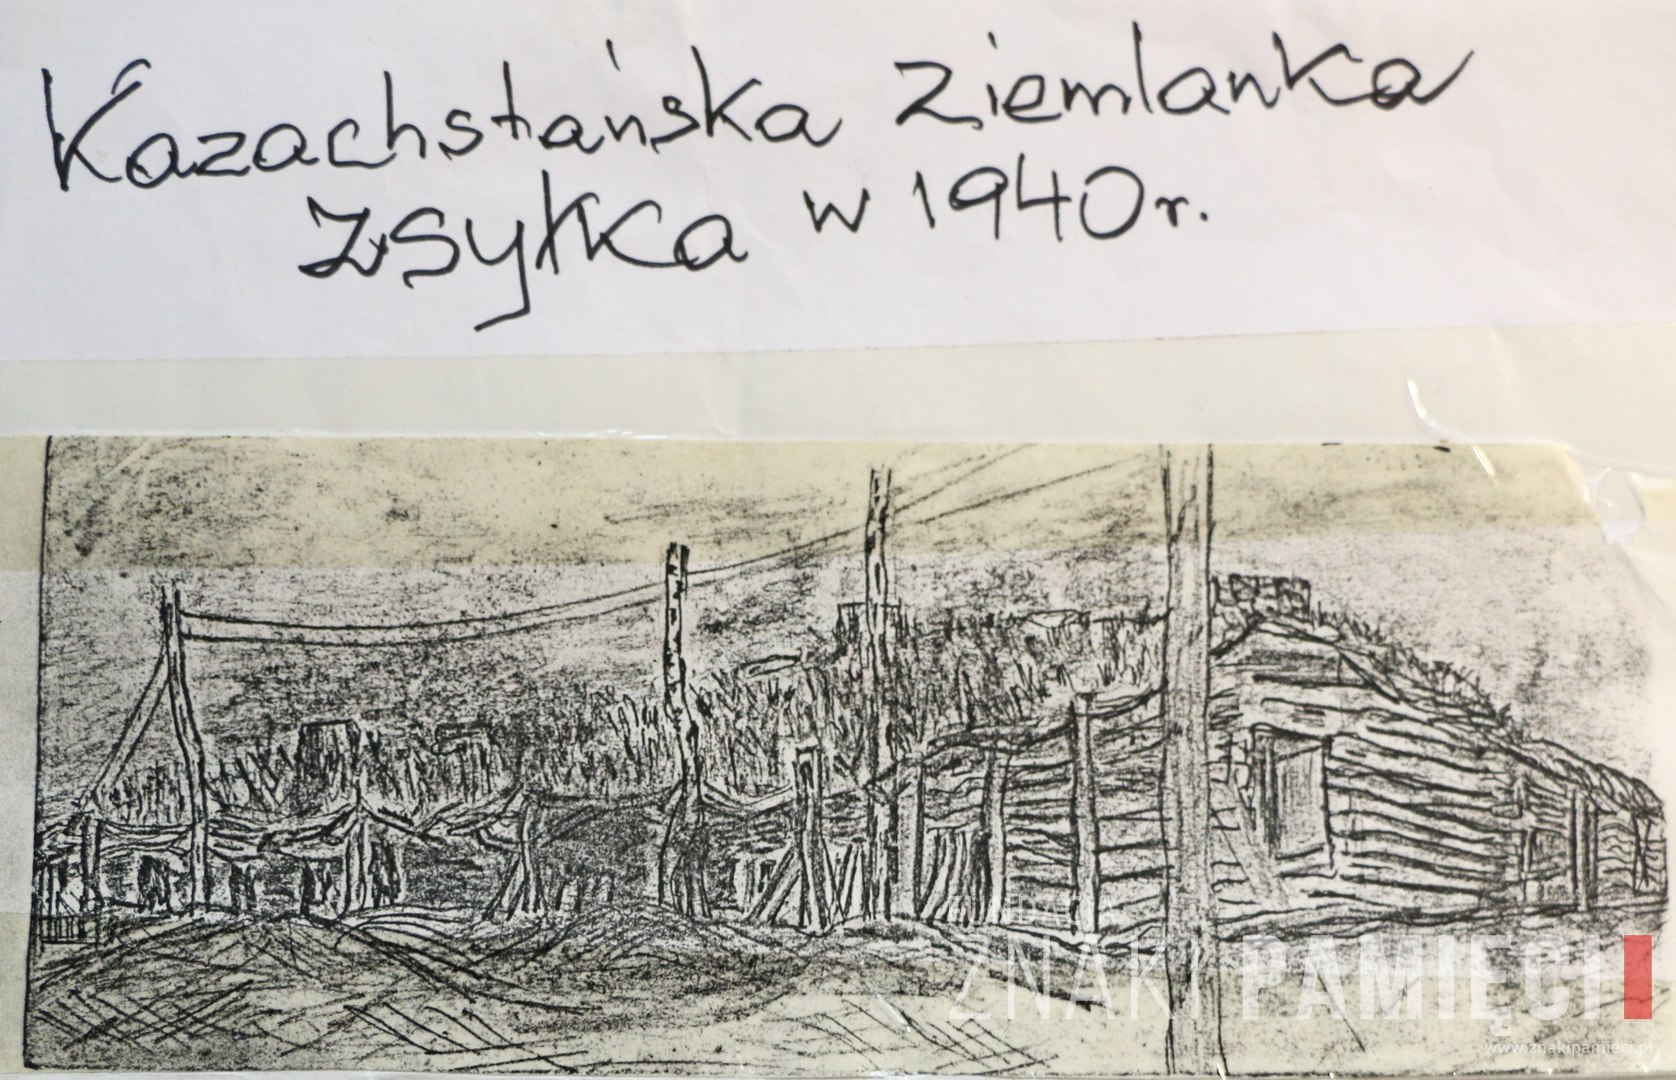 Kazachstańska Ziemlanka
Zsyłka w 1940 r.
FUNDACJA
ZNAKI PAMIĘCI
www.znakipamieci.pl